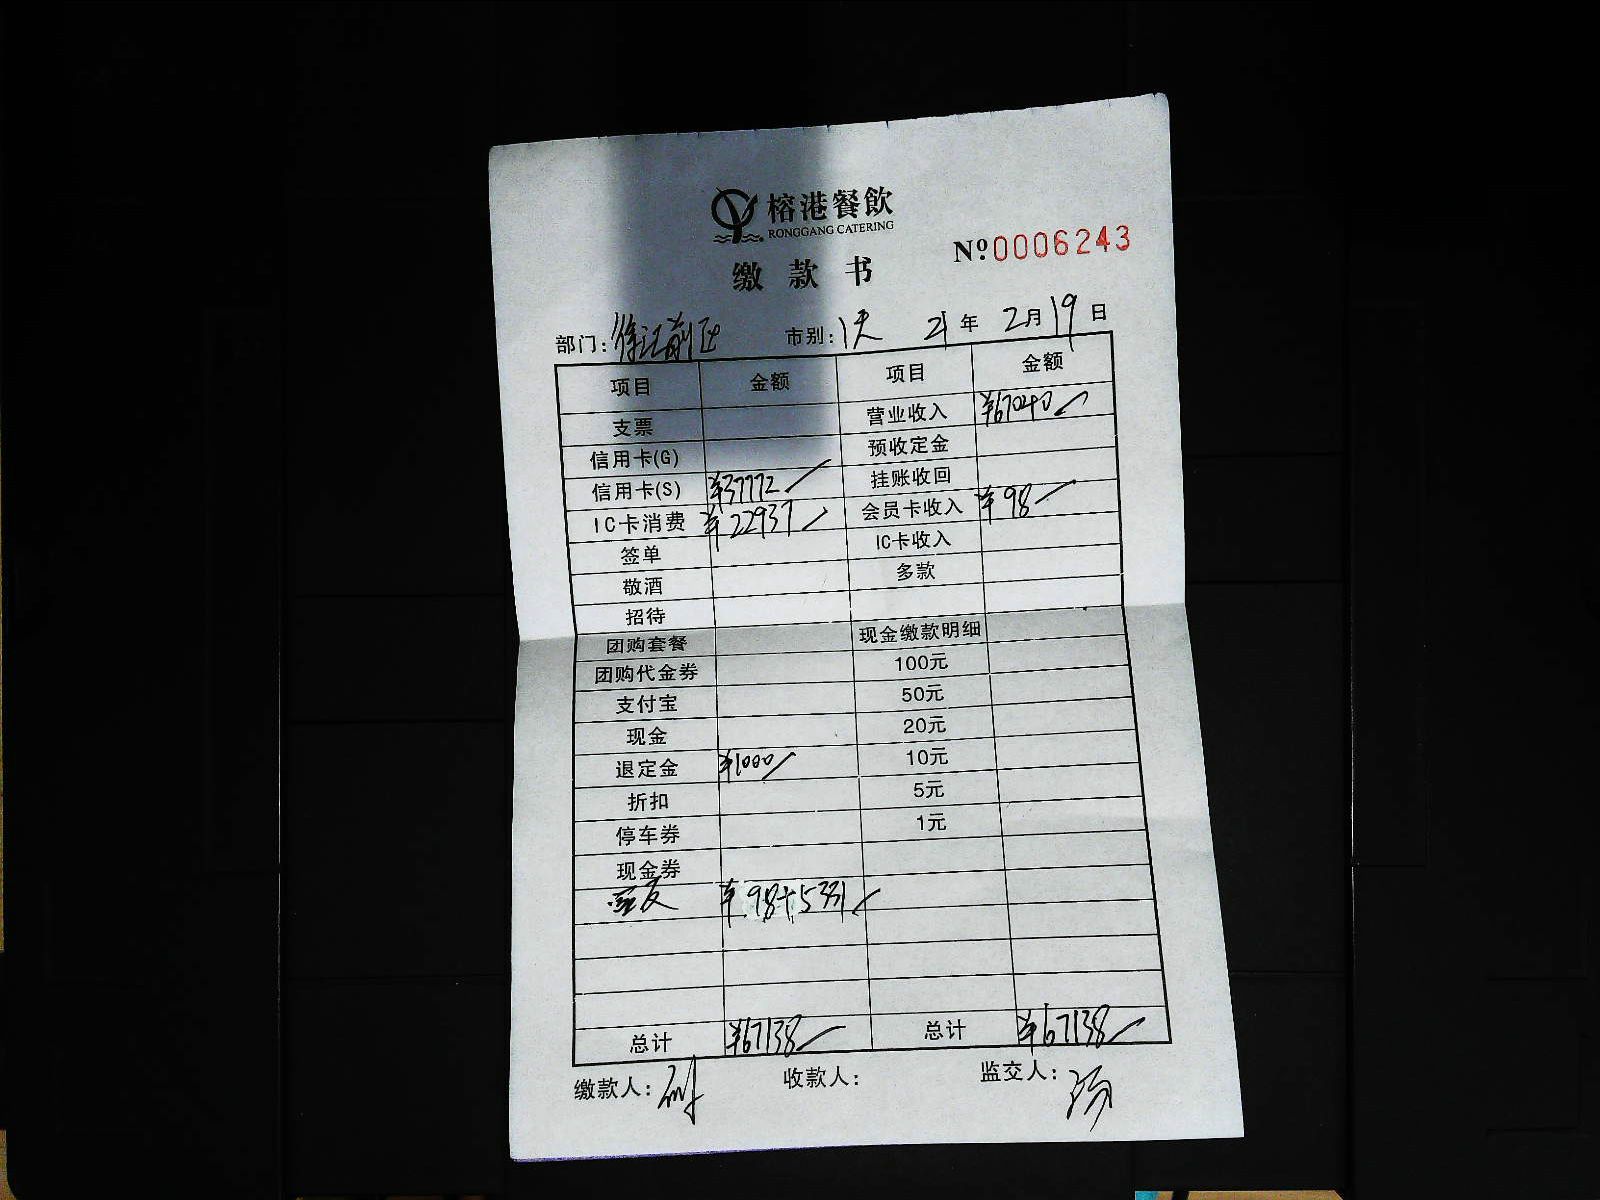 榕港餐飲
RONGGANG CATERING
№ 0006243
缴款书
部门: 徐汇前区 市别: 1天 21年 2月19日
项目 金额 项目 金额
支票 营业收入 ¥67040
信用卡(G) 预收定金
信用卡(S) ¥37772 挂账收回
IC卡消费 ¥22937 会员卡收入 ¥98
签单 IC卡收入
敬酒 多款
招待
团购套餐 现金缴款明细
团购代金券 100元
支付宝 50元
现金 20元
退定金 ¥1000 10元
折扣 5元
停车券 1元
现金券
¥98+5331
总计 ¥67138 总计 ¥67138
缴款人: 收款人: 监交人: